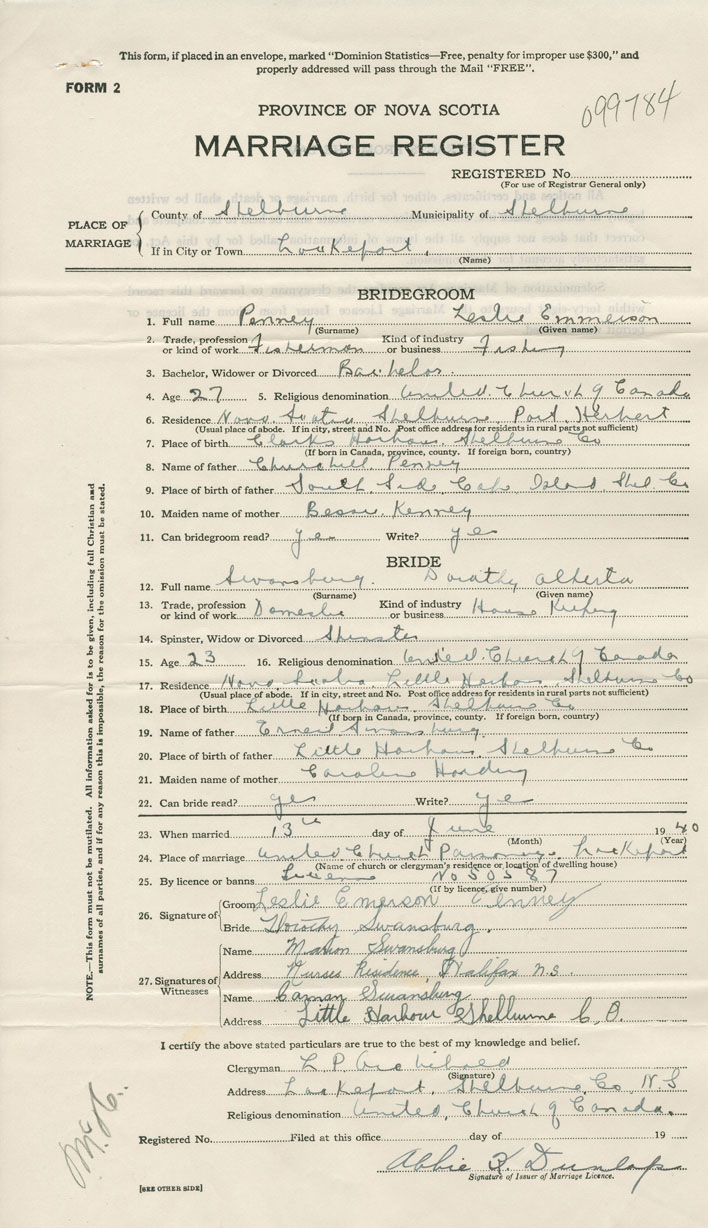 This form, if placed in an envelope, marked "Dominion Statistics—Free, penalty for improper use $300," and
properly addressed will pass through the Mail "FREE".
FORM 2
099784
PROVINCE OF NOVA SCOTIA
MARRIAGE REGISTER
REGISTERED No.
(For use of Registrar General only)
PLACE OF MARRIAGE
County of Shelburne Municipality of Shelburne
If in City or Town Lockeport
(Name)
BRIDEGROOM
1. Full name Penney Leslie Emmerson
(Surname) (Given name)
2. Trade, profession or kind of work Fisherman Kind of industry or business Fishing
3. Bachelor, Widower or Divorced Bachelor
4. Age 27 5. Religious denomination United Church of Canada
6. Residence Nova Scotia Shelburne Port Herbert
(Usual place of abode. If in city, street and No. Post office address for residents in rural parts not sufficient)
7. Place of birth Clarks Harbour Shelburne Co
(If born in Canada, province, county. If foreign born, country)
8. Name of father Churchill Penney
9. Place of birth of father South Side Cape Island Shel. Co
10. Maiden name of mother Bessie Kenney
11. Can bridegroom read? yes Write? yes
BRIDE
12. Full name Swansburg Dorothy Alberta
(Surname) (Given name)
13. Trade, profession or kind of work Domestic Kind of industry or business House Keeping
14. Spinster, Widow or Divorced Spinster
15. Age 23 16. Religious denomination United Church of Canada
17. Residence Nova Scotia Little Harbour Shelburne Co
(Usual place of abode. If in city, street and No. Post office address for residents in rural parts not sufficient)
18. Place of birth Little Harbour Shelburne Co
(If born in Canada, province, county. If foreign born, country)
19. Name of father Ernest Swansburg
20. Place of birth of father Little Harbour Shelburne Co
21. Maiden name of mother Caroline Harding
22. Can bride read? yes Write? yes
23. When married 13th day of June 1940
(Month) (Year)
24. Place of marriage United Church Parsonage Lockeport
(Name of church or clergyman's residence or location of dwelling house)
25. By licence or banns License No 50587
(If by licence, give number)
26. Signature of
Groom Leslie Emerson Penney
Bride Dorothy Swansburg.
27. Signatures of Witnesses
Name Marion Swansburg
Address Nurses Residence, Halifax N.S.
Name Carman Swansburg
Address Little Harbour Shelburne C.O.
I certify the above stated particulars are true to the best of my knowledge and belief.
Clergyman L P Archibald
(Signature)
Address Lockeport, Shelburne Co, N.S
Religious denomination United Church of Canada.
Registered No. Filed at this office day of 19
Abbie K. Dunlap
Signature of Issuer of Marriage Licence.
[SEE OTHER SIDE]
NOTE.—This form must not be mutilated. All information asked for is to be given, including full Christian and
surnames of all parties, and if for any reason this is impossible, the reason for the omission must be stated.